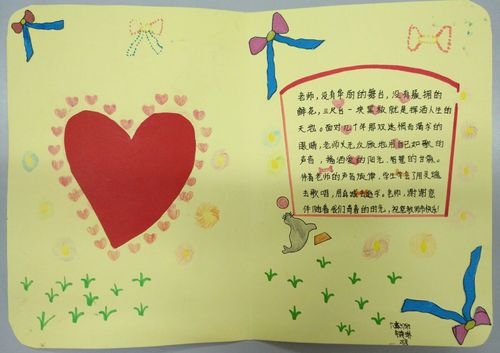 老师，没有华丽的舞台，没有簇拥的
鲜花，三尺台一块黑板就是挥洒人生的
天地。面对几十年那双迷惘而渴求的
眼睛，老师义无反顾地用自己如歌的
声音，播洒爱的阳光，智慧的甘露。
伴着老师的声音旋律，学生学会了用灵魂
去歌唱，用真诚去追求。老师，谢谢您
伴随着我们青春的时光，祝您教师节快乐！